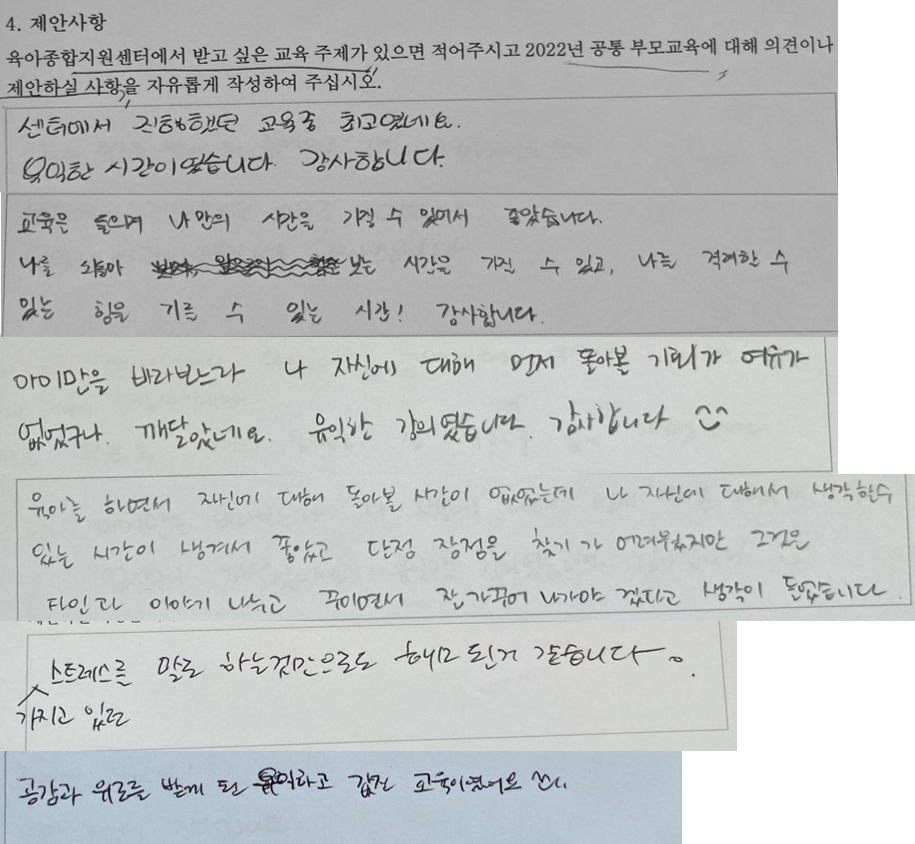 4. 제안사항
육아종합지원센터에서 받고 싶은 교육 주제가 있으면 적어주시고 2022년 공통 부모교육에 대해 의견이나
제안하실 사항을 자유롭게 작성하여 주십시오.
센터에서 진행했던 교육중 최고였네요.
유익한 시간이였습니다. 감사합니다.
교육은 들으며 나만의 시간을 가질 수 있어서 좋았습니다.
나를 되돌아 보는 시간을 가진 수 있고, 나를 격려할 수
있는 힘을 기를 수 있는 시간! 감사합니다.
아이만을 바라보느라 나 자신에 대해 먼저 돌아본 기회가 여유가
없었구나. 깨달았네요. 유익한 강의였습니다. 감사합니다 ^^
육아를 하면서 자신에 대해 돌아볼 시간이 없었는데 나 자신에 대해서 생각할수
있는 시간이 생겨서 좋았고 단점 장점을 찾기가 어려웠지만 그것은
타인과 이야기 나누고 꾸미면서 잘 가꾸어 나가야 겠다고 생각이 들었습니다.
가지고 있던 스트레스를 말로 하는것만으로도 해소 된거 같습니다.
공감과 위로를 받게 된 유익하고 값진 교육이였어요